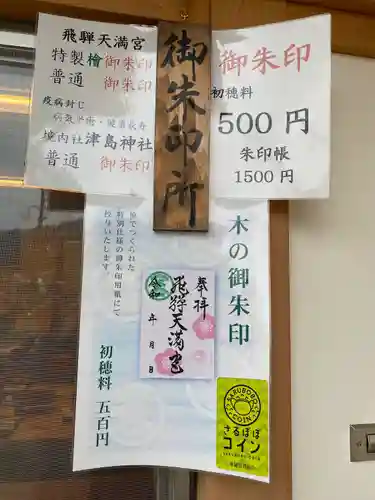 飛騨天満宮
特製檜御朱印
普通 御朱印
疫病封じ
病気平癒・健康長寿
境内社津島神社
普通 御朱印
御朱印所
御朱印
初穂料
500円
朱印帳
1500円
木の御朱印
特別仕様の御朱印用紙にて
授与いたします。
初穂料 五百円
奉拝
飛騨天満宮
令和 年 月 日
SARUBOBO COIN
さるぼぼ
コイン